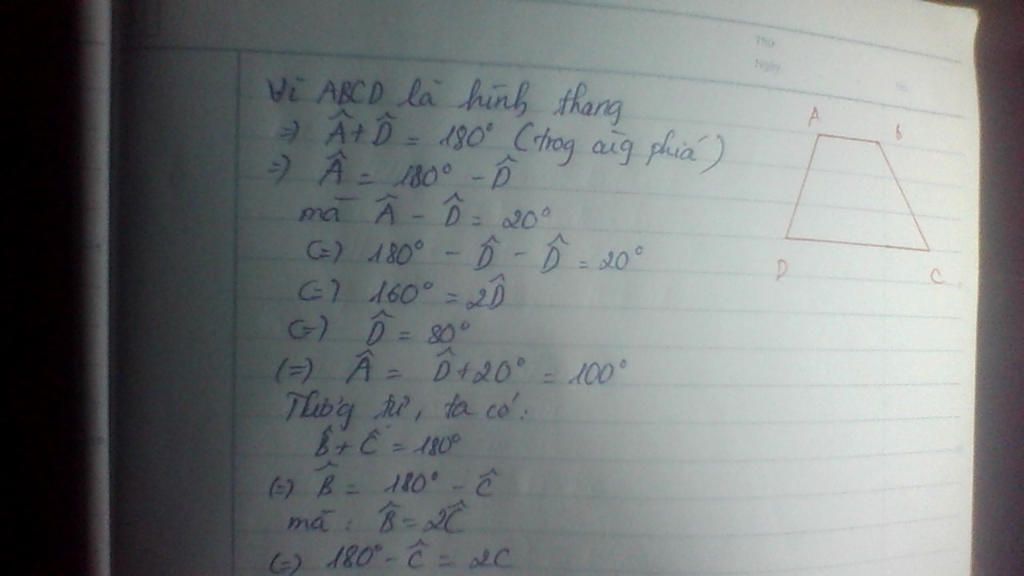 Thứ
Ngày
No
Vì ABCD là hình thang
=) Â + D̂ = 180° (trog cùg phiá)
=) Â = 180° - D̂
mà Â - D̂ = 20°
(=) 180° - D̂ - D̂ = 20°
(=) 160° = 2D̂
(=) D̂ = 80°
(=) Â = D̂ + 20° = 100°
Tương tự, ta có:
B̂ + Ĉ = 180°
(=) B̂ = 180° - Ĉ
mà : B̂ = 2Ĉ
(=) 180° - Ĉ = 2C
A B
D C